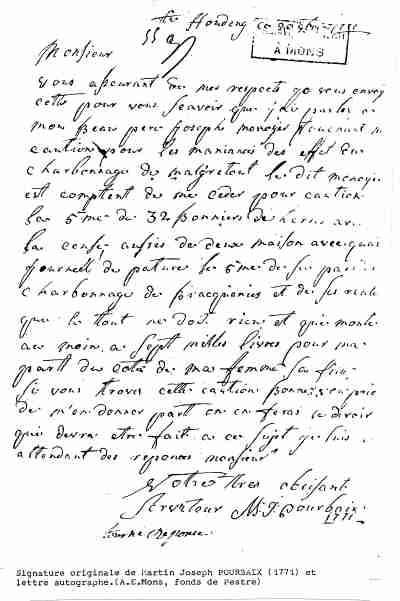 Houdeng
A MONS
Monsieur
vous assurant de mes respects je vous envoy
cette pour vous scavoir que j'ai parler a
mon beau pere joseph monoyer touchant
caution pour les maniance des effet du
charbonnage de le dit monoyer
est comptent de me ceder pour caution
la 5me de 32 bonniers de
la cense aussie de deux maison avec quat
journelle de pature le 5me de
charbonnage de bracquenies et de
que le tout ne doit rien et que monte
au moin a sept milles livres pour ma
partt du coté de ma femme
si vous trover cette caution bonne
de m'en donner partt on en feras le divoir
que devra etre fait a ce sujet je suis
attendant des reponces monsieur
Votre tres obeisant
serviteur M: J: pourbaix
1771
Signature originale de Martin Joseph POURBAIX (1771) et
lettre autographe.(A.E.Mons, fonds de Pestre)